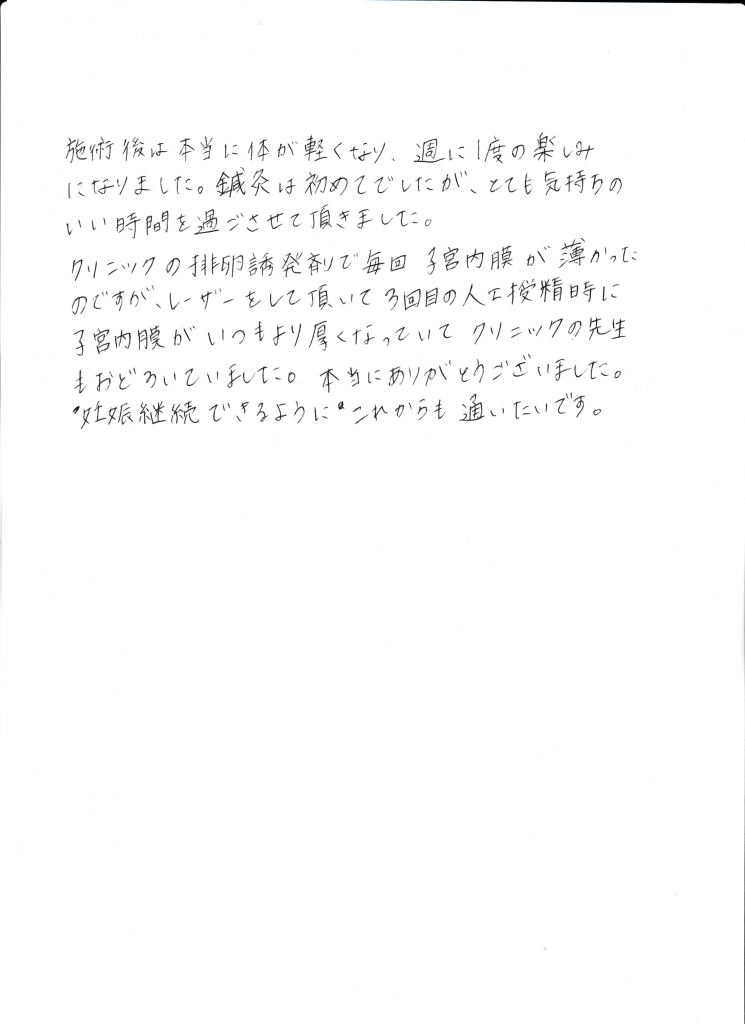 施術後は本当に体が軽くなり、週に1度の楽しみ
になりました。鍼灸は初めてでしたが、とても気持ちの
いい時間を過ごさせて頂きました。
クリニックの排卵誘発剤で毎回 子宮内膜が薄かった
のですが、レーザーをして頂いて3回目の人工授精時に
子宮内膜がいつもより厚くなっていて クリニックの先生
もおどろいていました。本当にありがとうございました。
"妊娠継続できるように"これからも通いたいです。